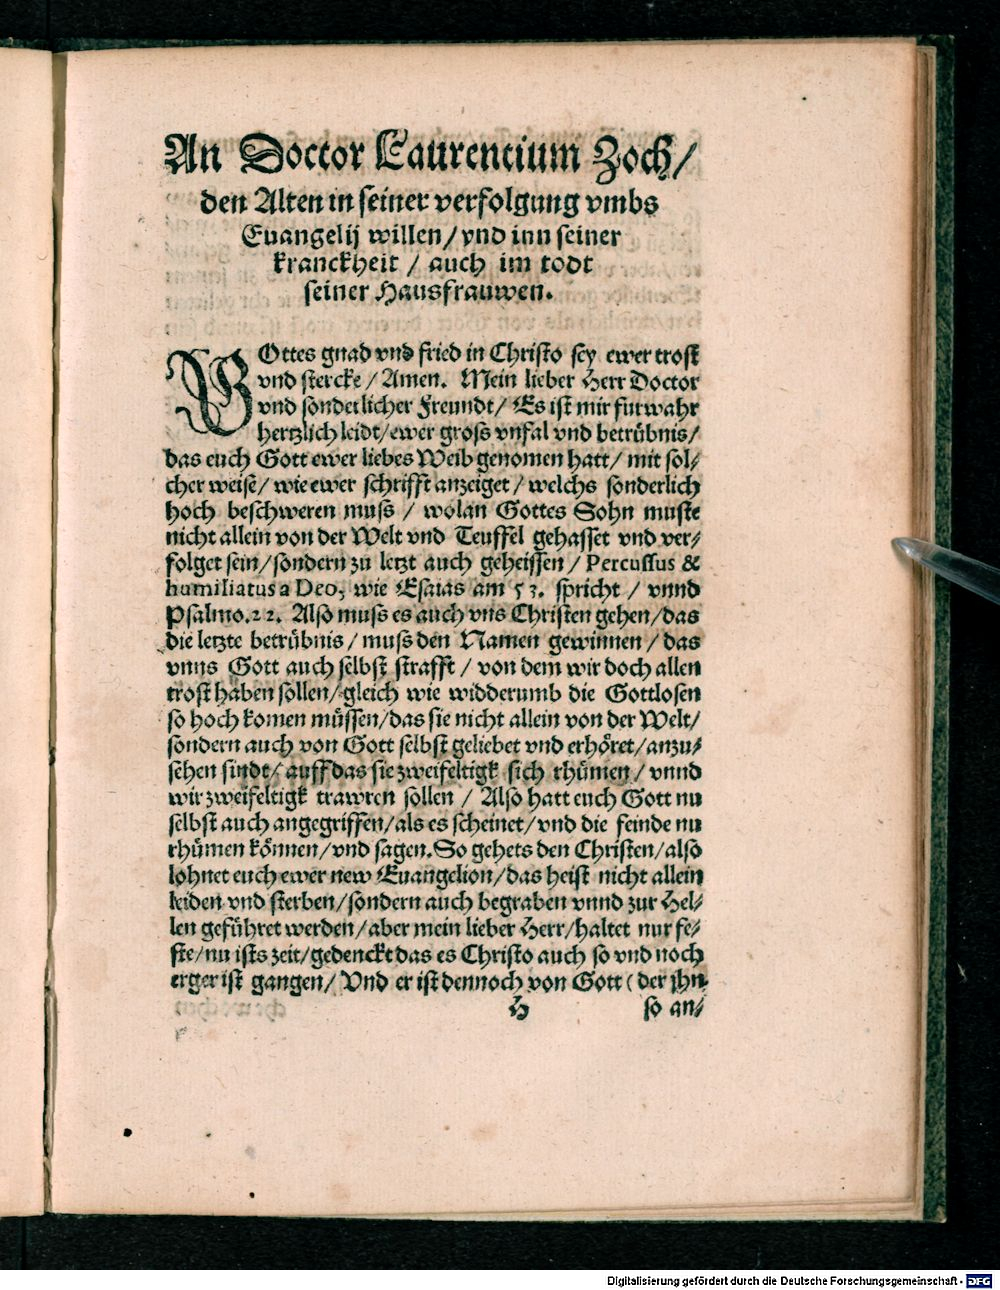 An Doctor Laurentium Zoch/
den Alten in seiner verfolgung vmbs
Euangelij willen/ vnd inn seiner
kranckheit / auch im todt
seiner Hausfrauwen.
GOttes gnad vnd fried in Christo sey ewer trost
vnd stercke / Amen. Mein lieber Herr Doctor
vnd sonderlicher Freundt/ Es ist mir furwahr
hertzlich leidt/ ewer gross vnfal vnd betrübnis/
das euch Gott ewer liebes Weib genomen hatt/ mit sol/
cher weise/ wie ewer schrifft anzeiget / welchs sonderlich
hoch beschweren muss / wolan Gottes Sohn muste
nicht allein von der Welt vnd Teuffel gehasset vnd ver/
folget sein/ sondern zu letzt auch geheissen / Percussus &
humiliatus a Deo, wie Esaias am 53. spricht / vnnd
Psalmo.22. Also muss es auch vns Christen gehen/ das
die letzte betrübnis / muss den Namen gewinnen / das
vnns Gott auch selbst strafft / von dem wir doch allen
trost haben sollen/ gleich wie widderumb die Gottlosen
so hoch komen müssen/ das sie nicht allein von der Welt/
sondern auch von Gott selbst geliebet vnd erhöret/ anzu/
sehen sindt/ auff das sie zweifeltigk sich rhümen / vnnd
wir zweifeltigk trawren sollen / Also hatt euch Gott nu
selbst auch angegriffen/ als es scheinet/ vnd die feinde nu
rhümen können/ vnd sagen. So gehets den Christen/ also
lohnet euch ewer new Euangelion/ das heist nicht allein
leiden vnd sterben/ sondern auch begraben vnnd zur Hel/
len geführet werden/ aber mein lieber Herr/ haltet nur fe/
ste/ nu ists zeit/ gedenckt das es Christo auch so vnd noch
erger ist gangen/ Vnd er ist dennoch von Gott ( der jhn
H so an/
Digitalisierung gefördert durch die Deutsche Forschungsgemeinschaft - DFG